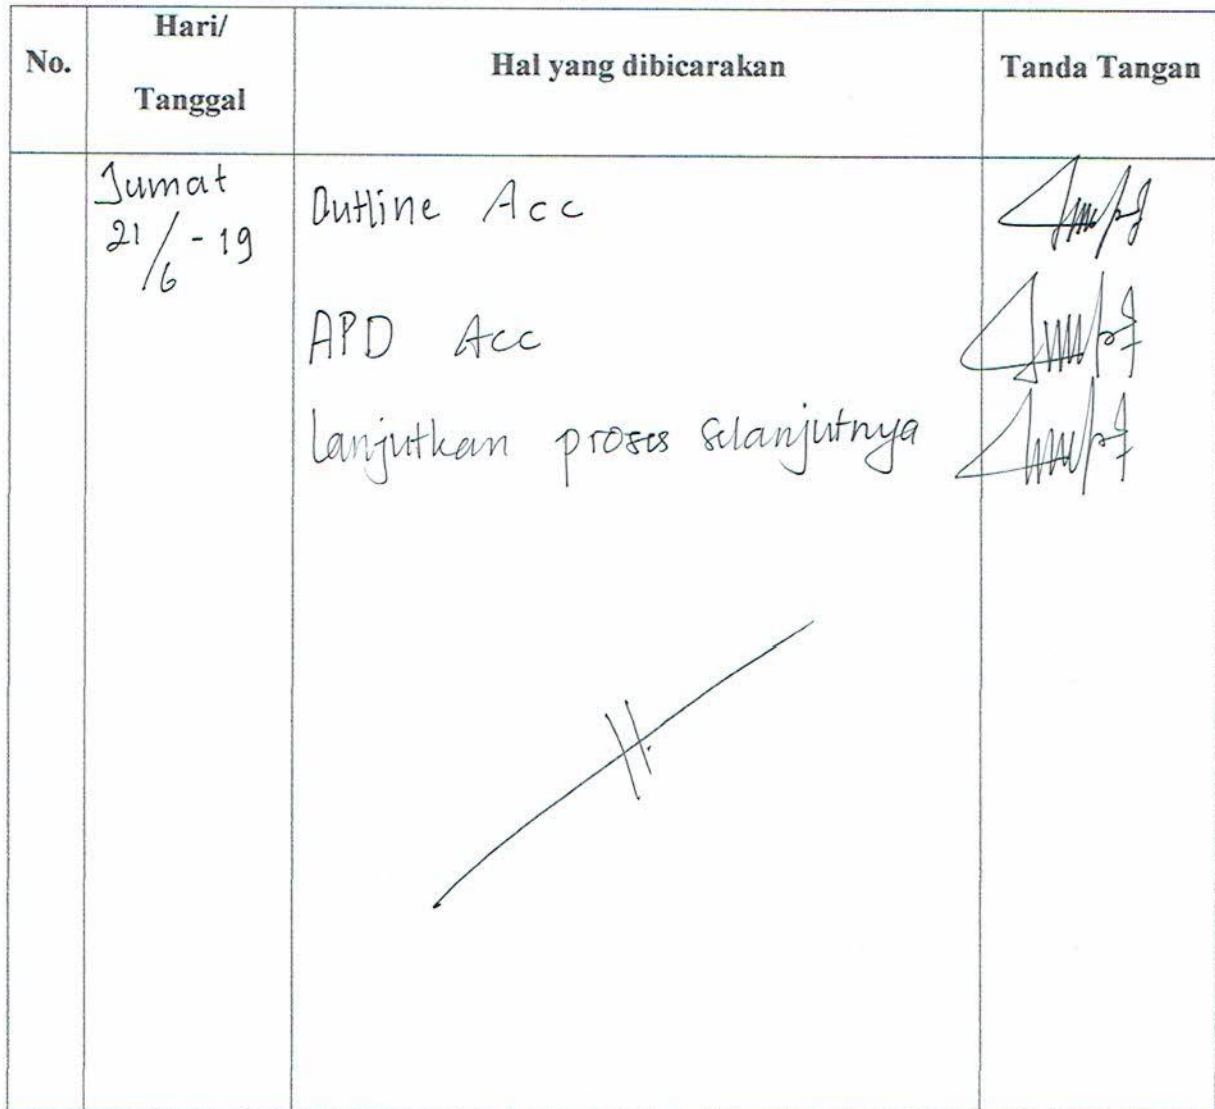 No.
Hari/
Tanggal
Hal yang dibicarakan
Tanda Tangan
Jumat
21/6 - 19
Outline Acc
APD Acc
lanjutkan proses selanjutnya